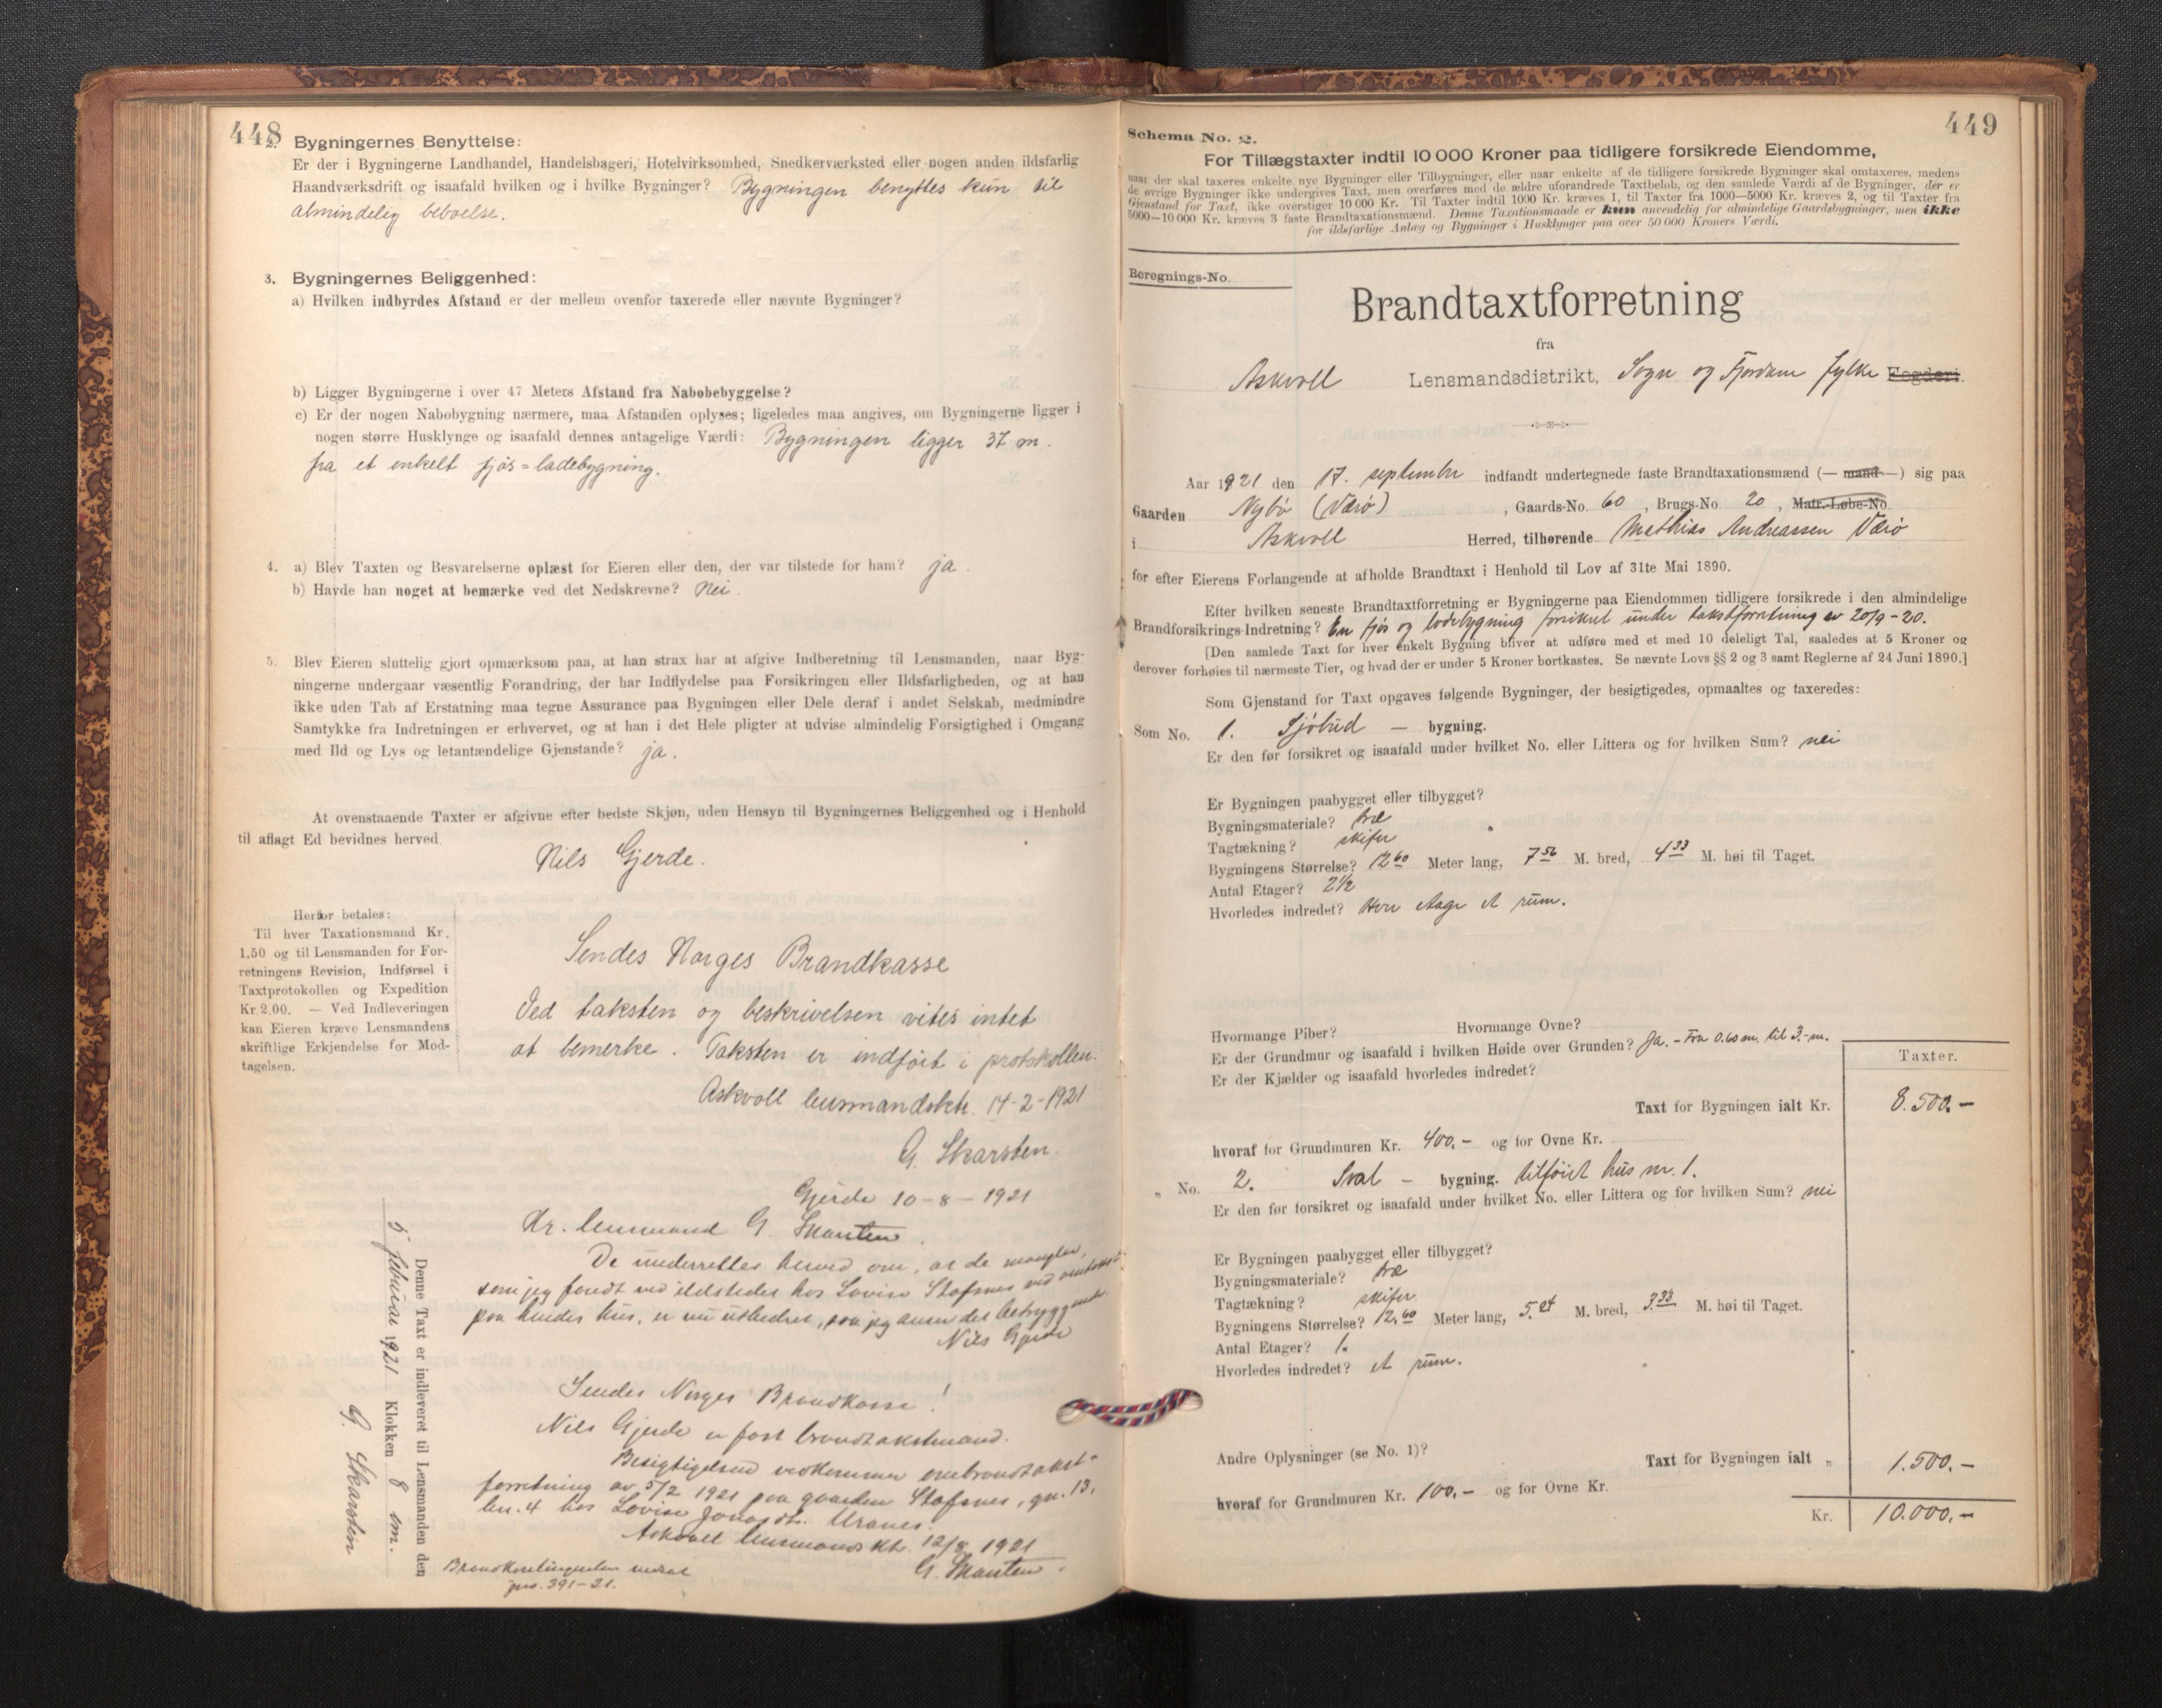 448
2. Bygningernes Benyttelse:
Er der i Bygningerne Landhandel, Handelsbageri, Hotelvirksomhed, Snedkerværksted eller nogen anden ildsfarlig
Haandværksdrift og isaafald hvilken og i hvilke Bygninger? Bygningen benyttes kun til
almindelig beboelse.
3. Bygningernes Beliggenhed:
a) Hvilken indbyrdes Afstand er der mellem ovenfor taxerede eller nævnte Bygninger?
b) Ligger Bygningerne i over 47 Meters Afstand fra Nabobebyggelse?
c) Er der nogen Nabobygning nærmere, maa Afstanden oplyses; ligeledes maa angives, om Bygningerne ligger i
nogen større Husklynge og isaafald dennes antagelige Værdi: Bygningen ligger 37 m.
fra et enkelt fjøs=ladebygning.
4. a) Blev Taxten og Besvarelserne oplæst for Eieren eller den, der var tilstede for ham? ja.
b) Havde han noget at bemærke ved det Nedskrevne? Nei.
5. Blev Eieren sluttelig gjort opmærksom paa, at han strax har at afgive Indberetning til Lensmanden, naar Byg-
ningerne undergaar væsentlig Forandring, der har Indflydelse paa Forsikringen eller Ildsfarligheden, og at han
ikke uden Tab af Erstatning maa tegne Assurance paa Bygningen eller Dele deraf i andet Selskab, medmindre
Samtykke fra Indretningen er erhvervet, og at han i det Hele pligter at udvise almindelig Forsigtighed i Omgang
med Ild og Lys og letantændelige Gjenstande? ja.
At ovenstaaende Taxter er afgivne efter bedste Skjøn, uden Hensyn til Bygningernes Beliggenhed og i Henhold
til aflagt Ed bevidnes herved.
Nils Gjerde.
Herfor betales:
Til hver Taxationsmand Kr.
1.50 og til Lensmanden for For-
retningens Revision, Indførsel i
Taxtprotokollen og Expedition
Kr. 2.00. — Ved Indleveringen
kan Eieren kræve Lensmandens
skriftlige Erkjendelse for Mod-
tagelsen.
Sendes Norges Brandkasse
Ved taksten og beskrivelsen vites intet
at bemerke. Taksten er indført i protokollen.
Askvoll lensmandskt. 14-2-1921
G. Skarsten.
Gjerde 10-8-1921
Hr. lensmand G. Skarsten.
De underrettes herved om, at de mangler,
som jeg fandt ved ildstedet hos Lovise Stafsnes ved
paa hendes hus, er nu utbedret, saa jeg anser det betryggende.
Nils Gjerde
Sendes Norges Brandkasse!
Nils Gjerde er fast brandtakstmand.
Besigtigelsen vedkommer ombrandtakst-
forretning av 5/2 1921 paa gaarden Stafsnes, gn. 13,
bn. 4 hos Lovise
Askvoll lensmandskt. 12/8 1921
G. Skarsten.
jno. 391-21.
Denne Taxt er indleveret til Lensmanden den
5 februar 1921 Klokken 8 em.
G. Skarsten
449
Schema No. 2.
For Tillægstaxter indtil 10 000 Kroner paa tidligere forsikrede Eiendomme,
naar der skal taxeres enkelte nye Bygninger eller Tilbygninger, eller naar enkelte af de tidligere forsikrede Bygninger skal omtaxeres, medens
de øvrige Bygninger ikke undergives Taxt, men overføres med de ældre uforandrede Taxtbeløb, og den samlede Værdi af de Bygninger, der er
Gjenstand for Taxt, ikke overstiger 10 000 Kr. Til Taxter indtil 1000 Kr. kræves 1, til Taxter fra 1000—5000 Kr. kræves 2, og til Taxter fra
5000—10 000 Kr. kræves 3 faste Brandtaxationsmænd. Denne Taxationsmaade er kun anvendelig for almindelige Gaardsbygninger, men ikke
for ildsfarlige Anlæg og Bygninger i Husklynger paa over 50 000 Kroners Værdi.
Beregnings-No.
Brandtaxtforretning
fra
Askvoll Lensmandsdistrikt, Sogn og Fjordane fylke Fogderi.
Aar 1921 den 17. september indfandt undertegnede faste Brandtaxationsmænd (— mand —) sig paa
Gaarden Nybø (Værø), Gaards-No. 60, Brugs-No. 20, Matr.-Løbe-No.
i Askvoll Herred, tilhørende Mathias Andreassen Værø
for efter Eierens Forlangende at afholde Brandtaxt i Henhold til Lov af 31te Mai 1890.
Efter hvilken seneste Brandtaxtforretning er Bygningerne paa Eiendommen tidligere forsikrede i den almindelige
Brandforsikrings-Indretning? En fjøs og ladebygning forsikret under takstforretning av 20/9-20.
[Den samlede Taxt for hver enkelt Bygning bliver at udføre med et med 10 deleligt Tal, saaledes at 5 Kroner og
derover forhøies til nærmeste Tier, og hvad der er under 5 Kroner bortkastes. Se nævnte Lovs §§ 2 og 3 samt Reglerne af 24 Juni 1890.]
Som Gjenstand for Taxt opgaves følgende Bygninger, der besigtigedes, opmaaltes og taxeredes:
Som No. 1. Sjøbud — bygning.
Er den før forsikret og isaafald under hvilket No. eller Littera og for hvilken Sum? nei
Er Bygningen paabygget eller tilbygget?
Bygningsmateriale? træ
Tagtækning? skifer
Bygningens Størrelse? 12.60 Meter lang, 7.56 M. bred, 4.33 M. høi til Taget.
Antal Etager? 2½
Hvorledes indredet? Hver etage et rum.
Hvormange Piber? Hvormange Ovne?
Er der Grundmur og isaafald i hvilken Høide over Grunden? Ja. - Fra 0.60 m. til 3.- m.
Er der Kjælder og isaafald hvorledes indredet?
Taxter.
Taxt for Bygningen ialt Kr. 8.500.-
hvoraf for Grundmuren Kr. 400.- og for Ovne Kr.
„ No. 2. Sval — bygning. tilføiet hus nr. 1.
Er den før forsikret og isaafald under hvilket No. eller Littera og for hvilken Sum? nei
Er Bygningen paabygget eller tilbygget?
Bygningsmateriale? træ
Tagtækning? skifer
Bygningens Størrelse? 12.60 Meter lang, M. bred, 3.33 M. høi til Taget.
Antal Etager? 1.
Hvorledes indredet? et rum.
Andre Oplysninger (se No. 1)?
Taxt for Bygningen ialt „ 1.500.-
hvoraf for Grundmuren Kr. 100.- og for Ovne Kr.
Kr. 10.000.-